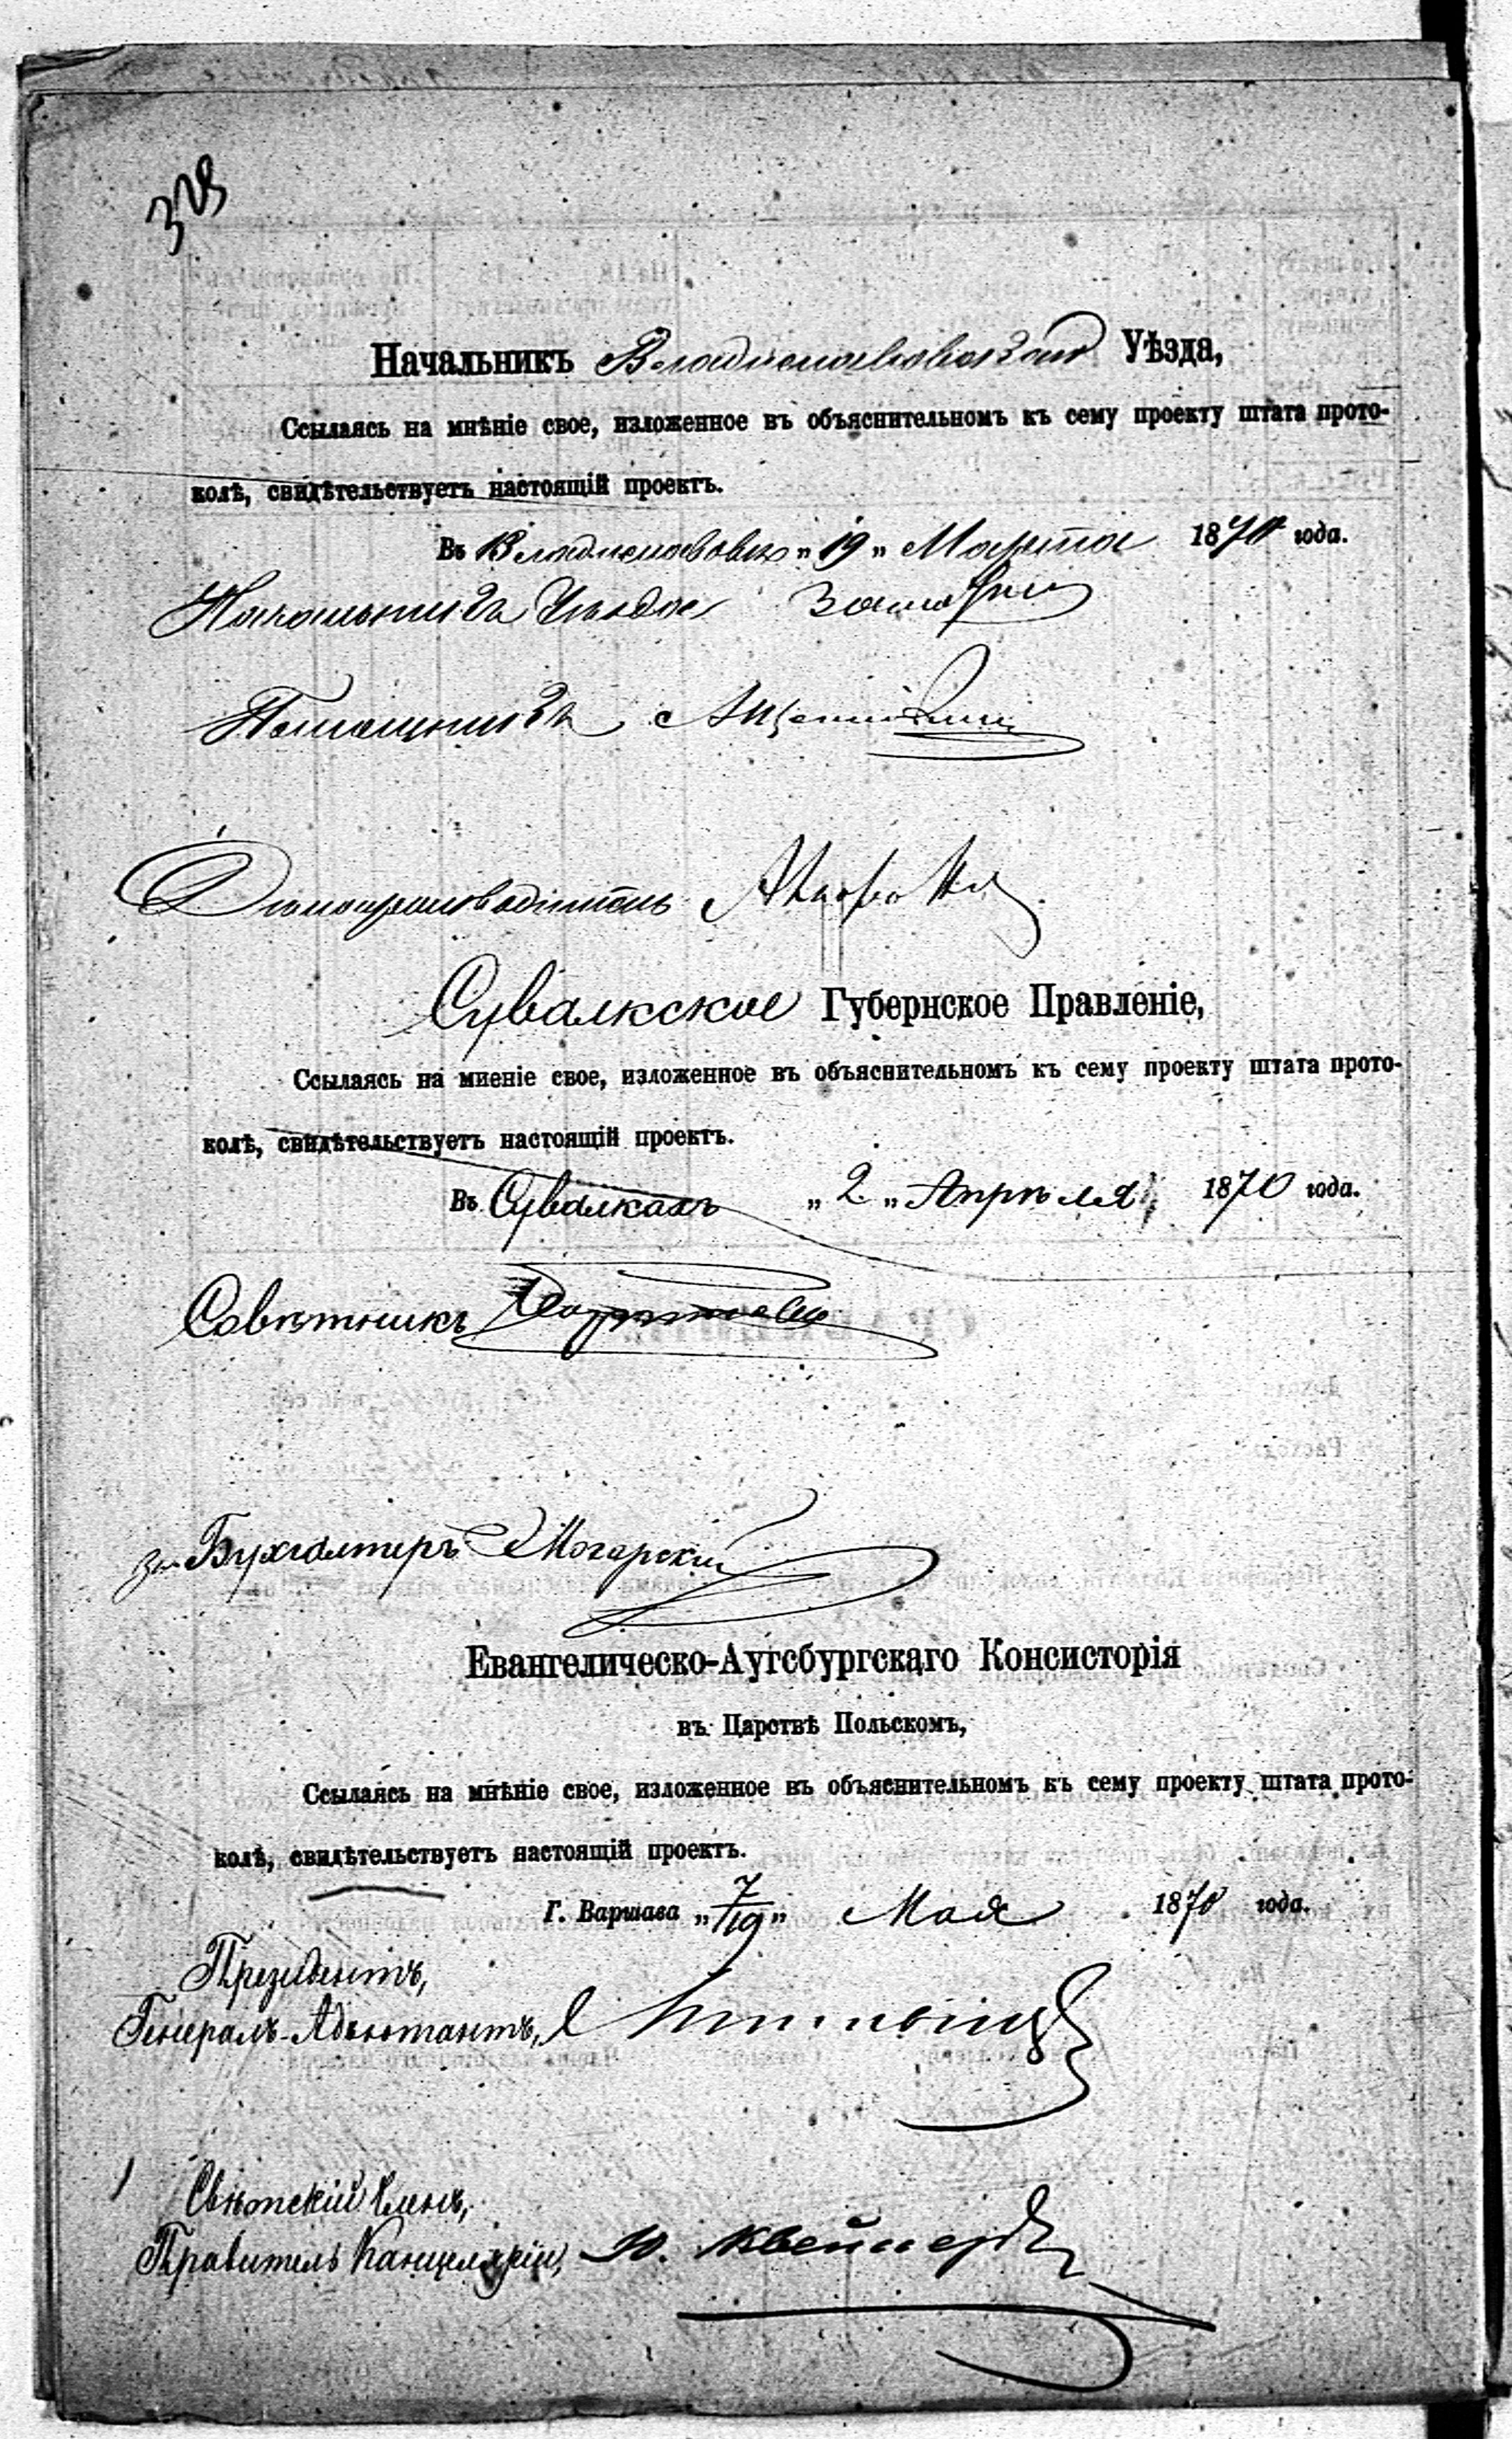 328
Начальникъ Владиславовскаго Уѣзда,
Ссылаясь на мнѣніе свое, изложенное въ объяснительномъ къ сему проекту штата прото-
колѣ, свидѣтельствуетъ настоящій проектъ.
Въ Владиславовѣ „19„ Марта 1870 года.
Начальникъ Уѣзда
Помощникъ
Дѣлопроизводитель
Сувалкское Губернское Правленіе,
Ссылаясь на миеніе свое, изложенное въ объяснительномъ къ сему проекту штата прото-
колѣ, свидѣтельствуетъ настоящій проектъ.
Въ Сувалкахъ „2„ Апрѣля 1870 года.
Совѣтникъ
за Бухгалтеръ Могарскій
Евангелическо-Аугсбургскаго Консисторія
въ Царствѣ Польскомъ,
Ссылаясь на мнѣніе свое, изложенное въ объяснительномъ къ сему проекту штата прото-
колѣ, свидѣтельствуетъ настоящій проектъ.
Г. Варшава „7/19„ Мая 1870 года.
Президентъ,
Генералъ-Адъютантъ,
Свѣтскій Членъ,
Правитель Канцеляріи, Ю. Квейнерт